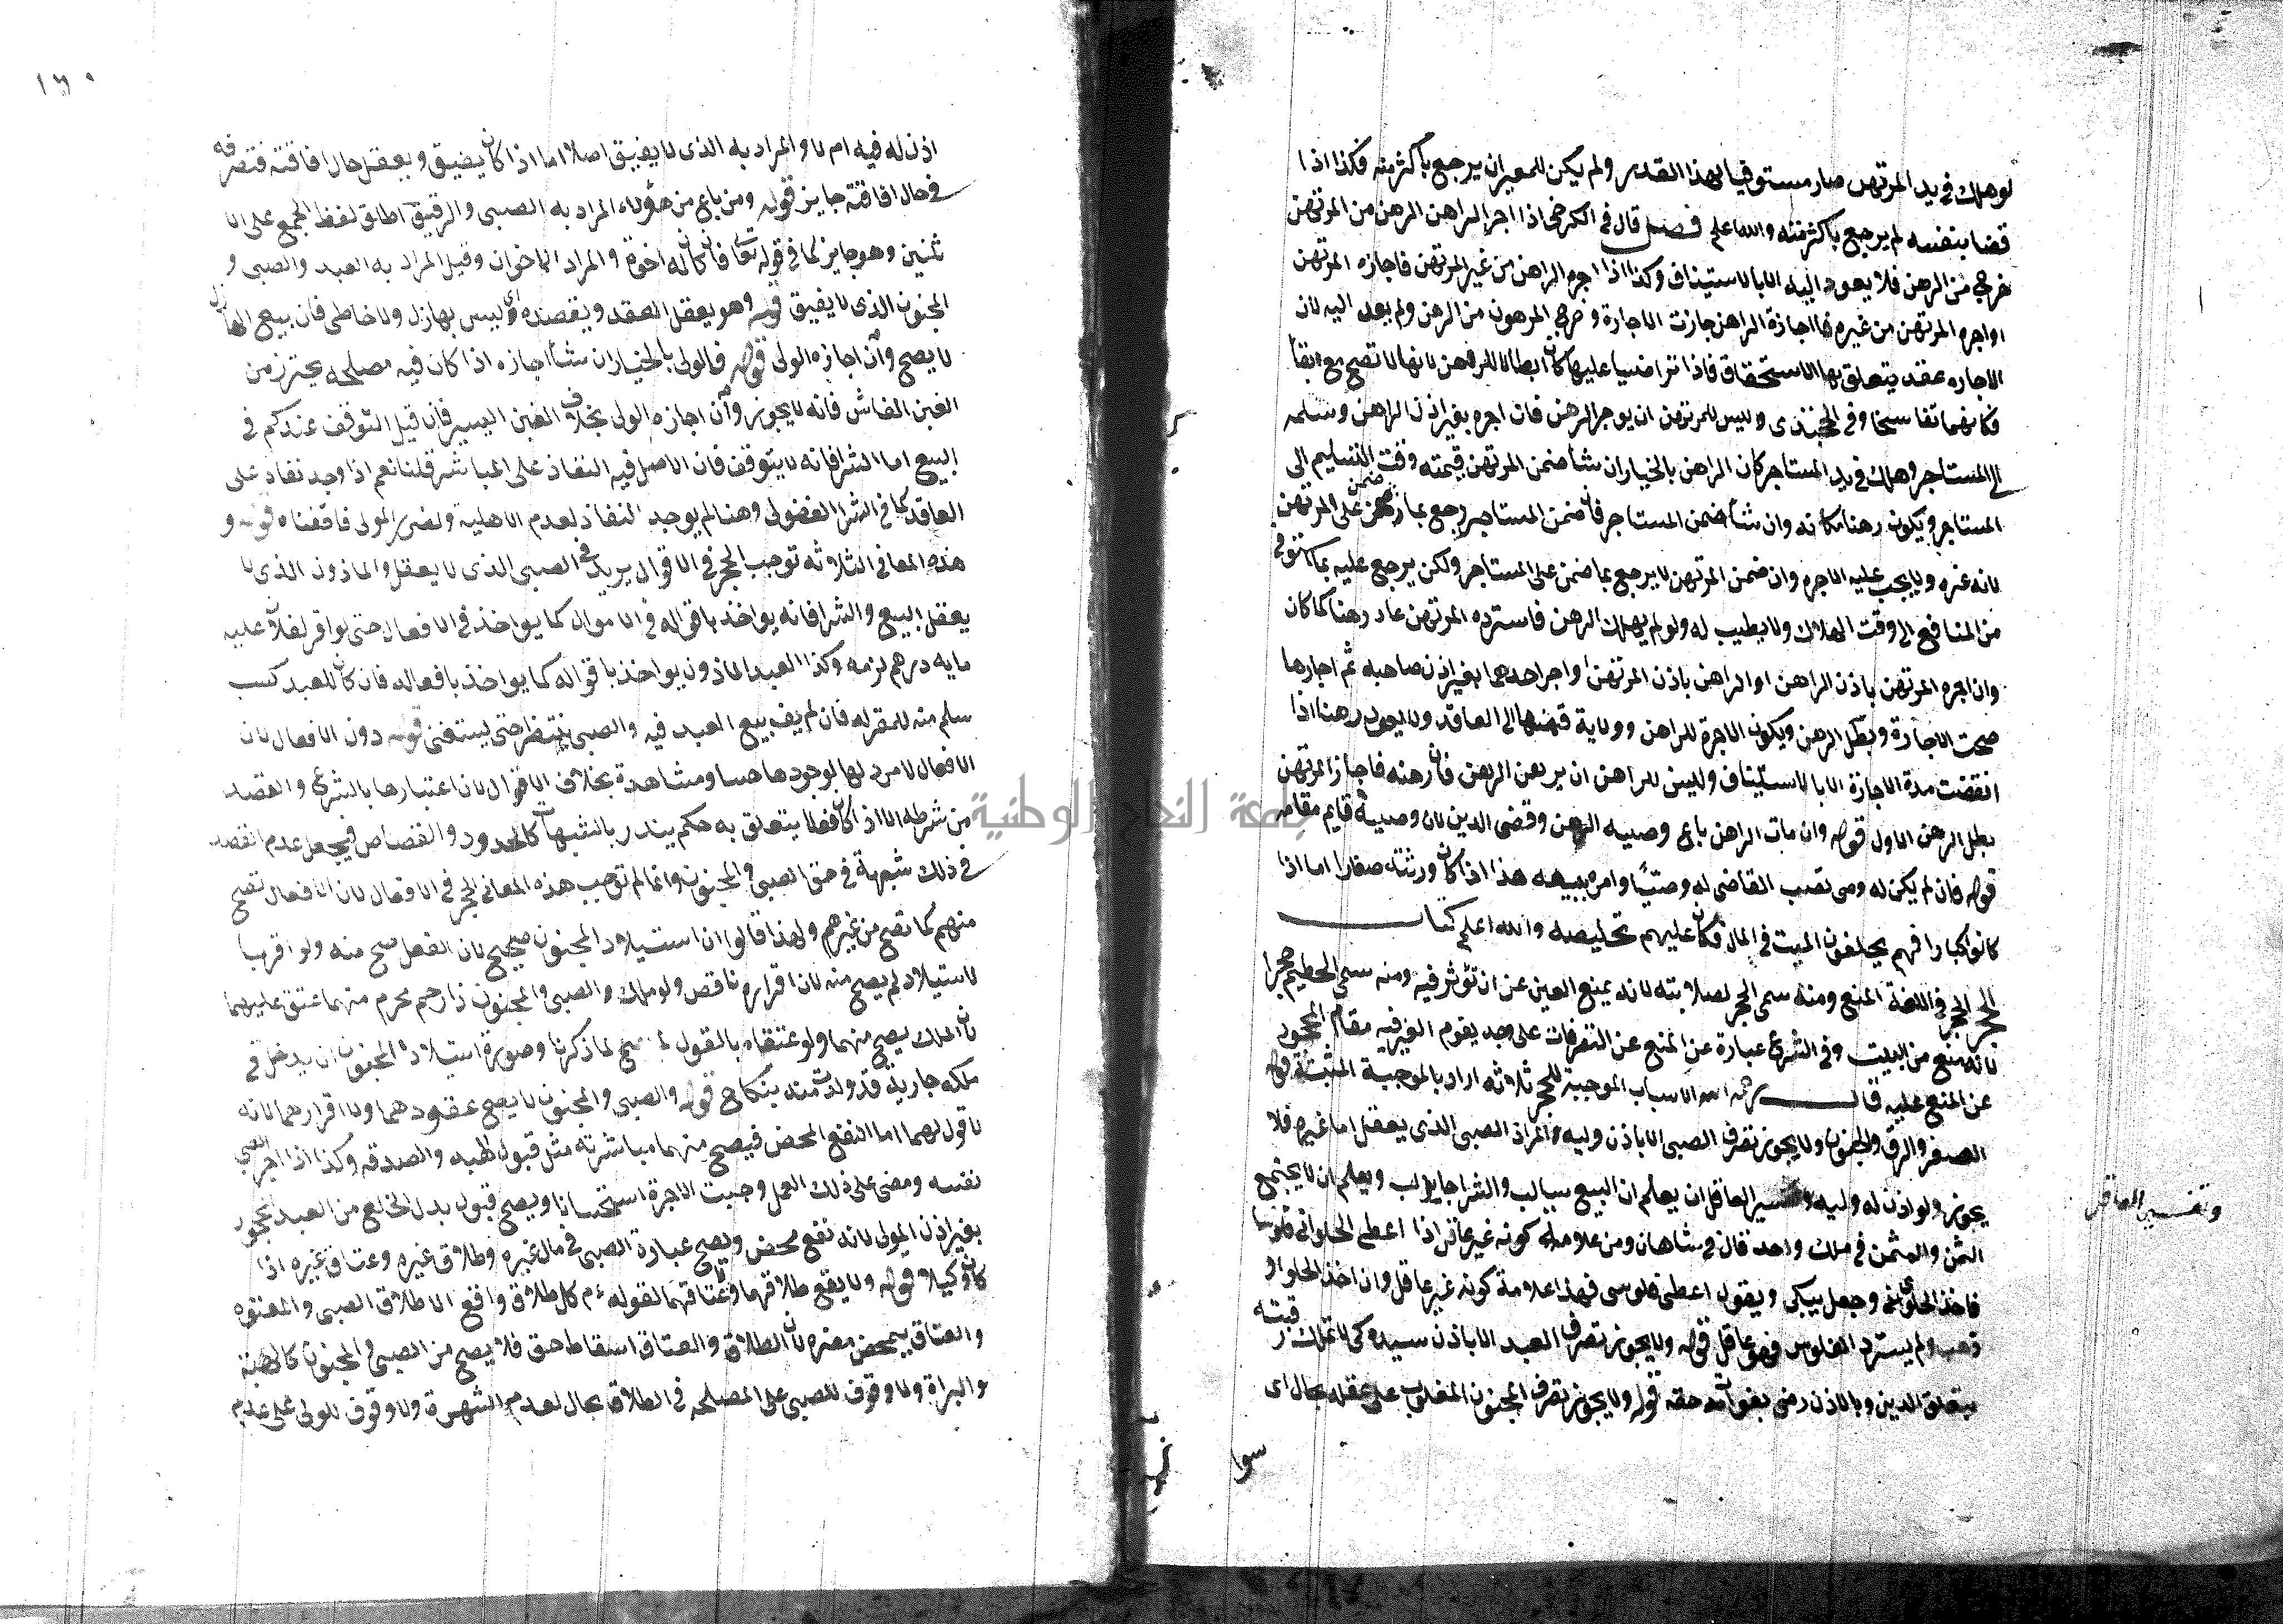 لو هلك في يد المرتهن صار مستوفيا لهذا القدر ولم يكن للمعير ان يرجع باكثر منه فكذا اذا
قضا بنفسه لم يرجع باكثر منه والله اعلم فصل قال في الكرخي اذا اجر الراهن الرهن من المرتهن
خرج من الرهن فلا يعود اليه الا بالاستيناف وكذا اذا اجره الراهن من غير المرتهن فاجازه المرتهن
او اجره المرتهن من غيره فاجازه الراهن جازت الاجارة وخرج المرهون من الرهن ولم يعد اليه لان
الاجاره عقد يتعلق بها الاستحقاق فاذا تراضيا عليها كان ابطالا للرهن لانها لا تصح مع ابقا
فكانهما تفاسخا وفي الخجندي وليس للمرتهن ان يوجر الرهن فان اجره بغير اذن الراهن وسلمه
الى المستاجر وهلك في يد المستاجر كان الراهن بالخيار ان شا ضمن المرتهن قيمته وقت التسليم الى
المستاجر ويكون رهنا مكانه وان شا ضمن المستاجر فان ضمن المستاجر رجع بما ضمن على المرتهن
لانه غره ولا يجب عليه الاجره وان ضمن المرتهن لا يرجع بما ضمن على المستاجر ولكن يرجع عليه بما استوفى
من المنافع الى وقت الهلاك ولا يطيب له ولو لم يهلك الرهن فاسترده المرتهن عاد رهنا كما كان
وان اجره المرتهن باذن الراهن او الراهن باذن المرتهن او اجر احدهما بغير اذن صاحبه ثم اجازها
صحت الاجارة وبطل الرهن ويكون الاجرة للراهن وولاية قبضها الى العاقد ولا يعود رهنا اذا
انقضت مدة الاجارة الا بالاستيناف وليس للراهن ان يرهن الرهن فان رهنه فاجاز المرتهن
بطل الرهن الاول قوله وان مات الراهن باع وصيه الرهن وقضى الدين لان وصيه قايم مقامه
قوله فان لم يكن له وصى نصب القاضي له وصيا وامره ببيعه هذا اذا كان ورثته صغارا اما اذا
كانوا كبارا فهم يخلفون الميت في المال فكان عليهم تخليصه والله اعلم كتاب
الحجر الحجر في اللغة المنع ومنه سمى الحجر لصلابته لانه يمنع العين عن ان تؤثر فيه ومنه سمى الحطيم حجرا
لانه منع من البيت وفي الشرع عبارة عن المنع عن التصرفات على وجه يقوم الغير فيه مقام المحجور
عن المنع عليه قال رحمه الله الاسباب الموجبة للحجر ثلاثه اراد بالموجبة المثبتة قوله
الصغر والرق والجنون ولا يجوز تصرف الصبي الا باذن وليه والمراد الصبي الذي يعقل اما غيره فلا
يجوز ولو اذن له وليه وتفسير العاقل ان يعلم ان البيع سالب والشرا جالب ويعلم ان لا يجتمع
الثمن والمثمن في ملك واحد قال في شاهان ومن علامة كونه غير عاقل اذا اعطى الحلواني فلوسا
فاخذ الحلوى وجعل يبكي ويقول اعطني فلوسي فهذا علامة كونه غير عاقل وان اخذ الحلوا و
ذهب ولم يسترد الفلوس فهو عاقل قوله ولا يجوز تصرف العبد الا باذن سيده كي لا تملك رقبته
بتعلق الدين وبالاذن رضي بفوات حقه قوله ولا يجوز تصرف المجنون المغلوب على عقله بحال اي
سوا
وتفسير العاقل
١٦٠
اذن له فيه ام لا والمراد به الذى لا يفيق اصلا اما اذا كان يفيق ويعقل حال افاقته فتصرفه
في حال افاقته جايز قوله ومن باع من هؤلاء المراد به الصبي والرقيق اطلق لفظ الجمع على الا
ثنين وهو جايز كما في قوله تعا فان كان له اخوة والمراد الاخوان وقيل المراد به العبد والصبي و
المجنون الذى لا يفيق قوله وهو يعقل العقد ويقصده اي ليس بهازل ولا خاطى فان بيع الهازل
لا يصح وان اجازه الولى قوله فالولى بالخيار ان شا اجازه اذا كان فيه مصلحه يحترز من
الغبن الفاحش فانه لا يجوز وان اجازه الولى بخلاف الغبن اليسير فان قيل التوقف عندكم في
البيع اما الشرا فانه لا يتوقف فان الاصل فيه النفاذ على المباشر قلنا نعم اذا وجد نفاذ على
العاقد كما في الشرا الفضولى وهنا لم يوجد النفاذ لعدم الاهلية ولضرر المولى فاقفناه قوله و
هذه المعاني الثلاثه توجب الحجر في الاقوال يريد الصبي الذى لا يعقل والماذون الذى لا
يعقل البيع والشرا فانه يواخذ باقواله في الاموال كما يواخذ في الافعال حتى لو اقر لفلان عليه
مايه درهم لزمه وكذا العبد الماذون يواخذ باقواله كما يواخذ بافعاله فان كان للعبد كسب
سلم منه للمقر له فان لم يف بيع العبد فيه والصبي ينتظر حتى يستغنى قوله دون الافعال لان
الافعال لا مرد لها لوجودها حسا ومشاهدة بخلاف الاقوال لان اعتبارها بالشرع والقصد
من شرطه الا اذا كان فعلا يتعلق به حكم يندر بالشبهات كالحدود والقصاص فيجعل عدم القصد
في ذلك شبهة في حق الصبي والمجنون وانما لم توجب هذه المعاني الحجر في الافعال لان الافعال تصح
منهم كما تصح من غيرهم ولهذا قالوا ان استيلاد المجنون صحيح لان الفعل صح منه ولو اقر با
لاستيلاد لم يصح منه لان اقراره ناقص ولو ملك والصبي والمجنون ذا رحم محرم منهما عتق عليهما
لان الملك يصح منهما ولو عتقاه بالقول لم يصح لما ذكرنا وصورة استيلاد المجنون ان يدخل في
ملكه جارية قد ولدت منه بنكاح قوله والصبي والمجنون لا يصح عقودهما ولا اقرارهما لانه
لا قول لهما اما النفع المحض فيصح منهما مباشرته مثل قبول الهبه والصدقه وكذا اذا اجر الصبي
نفسه ومضى على ذلك العمل وجبت الاجرة استحسانا ويصح قبول بدل الخلع من العبد المحجور
بغير اذن المولى لانه نفع محض ويصح عبارة الصبي في مال غيره وطلاق غيره وعتاق غيره اذا
كان وكيلا قوله ولا يقع طلاقهما وعتاقهما لقوله ءم كل طلاق واقع الا طلاق الصبي والمعتوه
والعتاق يتمحض مضره لان الطلاق والعتاق اسقاط حق فلا يصح من الصبي والمجنون كالهبة
والبراة ولا وقوف للصبي على المصلحه في الطلاق بحال لعدم الشهوة ولا وقوف للولى على عدم
جامعة النجاح الوطنية